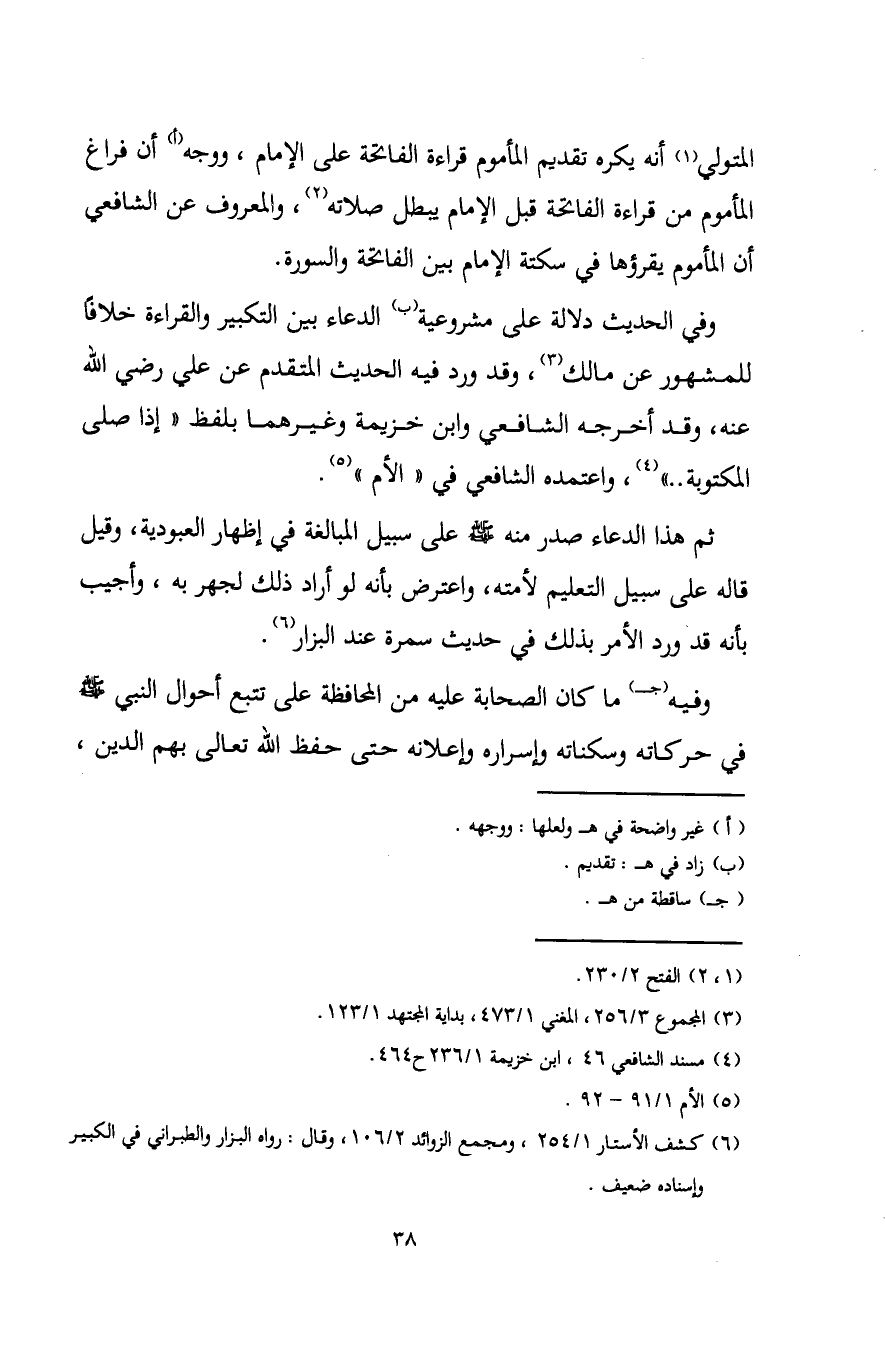 المتولي(١) أنه يكره تقديم المأموم قراءة الفاتحة على الإمام ، ووجه(أ) أن فراغ
المأموم من قراءة الفاتحة قبل الإمام يبطل صلاته(٢) ، والمعروف عن الشافعي
أن المأموم يقرؤها في سكتة الإمام بين الفاتحة والسورة.
وفي الحديث دلالة على مشروعية(ب) الدعاء بين التكبير والقراءة خلافًا
للمشهور عن مالك(٣) ، وقد ورد فيه الحديث المتقدم عن علي رضي الله
عنه، وقد أخرجه الشافعي وابن خزيمة وغيرهما بلفظ « إذا صلى
المكتوبة..»(٤) ، واعتمده الشافعي في « الأم »(٥) .
ثم هذا الدعاء صدر منه ﷺ على سبيل المبالغة في إظهار العبودية، وقيل
قاله على سبيل التعليم لأمته، واعترض بأنه لو أراد ذلك لجهر به ، وأجيب
بأنه قد ورد الأمر بذلك في حديث سمرة عند البزار(٦) .
وفيه(جـ) ما كان الصحابة عليه من المحافظة على تتبع أحوال النبي ﷺ
في حركاته وسكناته وإسراره وإعلانه حتى حفظ الله تعالى بهم الدين ،
( أ ) غير واضحة في هـ ولعلها : ووجهه .
(ب) زاد في هـ : تقديم .
( جـ) ساقطة من هـ .
(١ ، ٢) الفتح ٢/ ٢٣٠.
(٣) المجموع ٣/ ٢٥٦، المغني ١/ ٤٧٣، بداية المجتهد ١/ ١٢٣ .
(٤) مسند الشافعي ٤٦ ، ابن خزيمة ١/ ٢٣٦ ح٤٦٤.
(٥) الأم ١/ ٩١ – ٩٢ .
(٦) كشف الأستار ١/ ٢٥٤ ، ومجمع الزوائد ٢/ ١٠٦، وقال : رواه البزار والطبراني في الكبير
وإسناده ضعيف .
٣٨